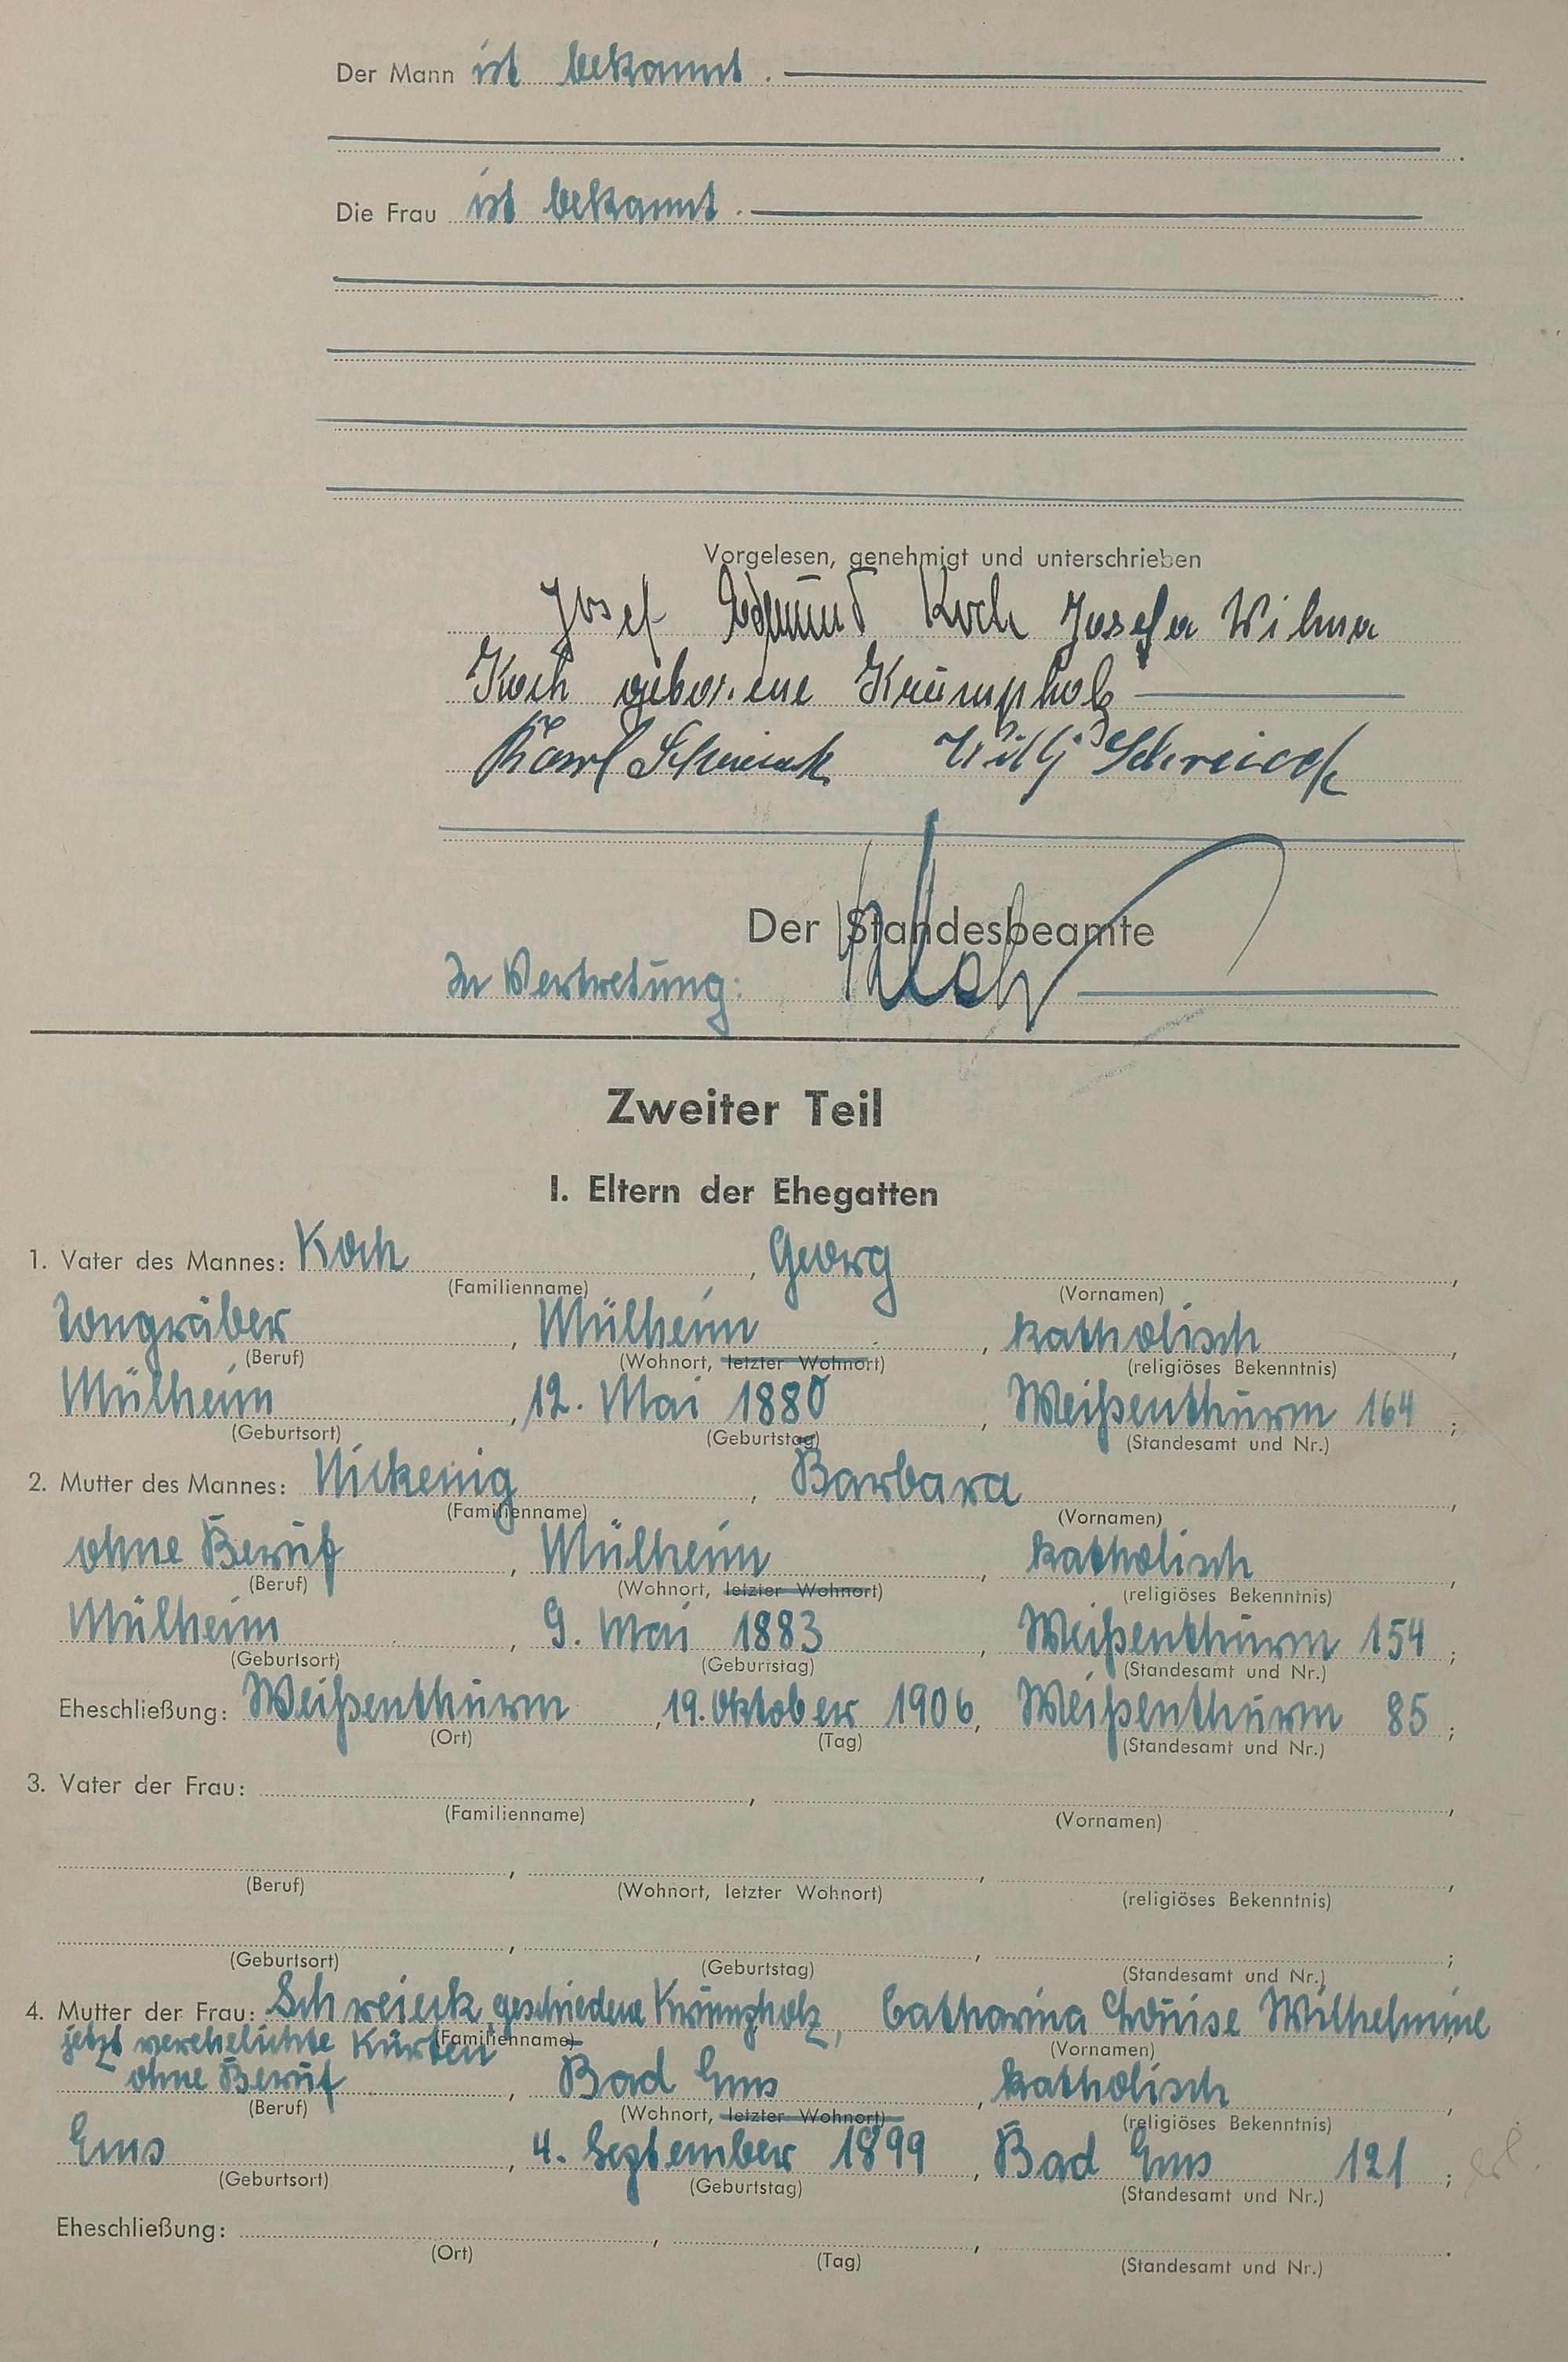 Der Mann ist bekannt.
Die Frau ist bekannt.
Vorgelesen, genehmigt und unterschrieben
Josef Edmund Koch Josefa Wilma
Koch geborene Krümpholz
Karl Schreieck Willy Schreieck
Der Standesbeamte
In Vertretung:
Zweiter Teil
I. Eltern der Ehegatten
1. Vater des Mannes: Koch, Georg,
(Familienname) (Vornamen)
Tongräber, Mülheim, katholisch,
(Beruf) (Wohnort, letzter Wohnort) (religiöses Bekenntnis)
Mülheim, 12. Mai 1880, Weißenthurm 164;
(Geburtsort) (Geburtstag) (Standesamt und Nr.)
2. Mutter des Mannes: Nickenig, Barbara,
(Familienname) (Vornamen)
ohne Beruf, Mülheim, katholisch,
(Beruf) (Wohnort, letzter Wohnort) (religiöses Bekenntnis)
Mülheim, 9. Mai 1883, Weißenthurm 154;
(Geburtsort) (Geburtstag) (Standesamt und Nr.)
Eheschließung: Weißenthurm, 19. Oktober 1906, Weißenthurm 85;
(Ort) (Tag) (Standesamt und Nr.)
3. Vater der Frau: , ,
(Familienname) (Vornamen)
(Beruf) (Wohnort, letzter Wohnort) (religiöses Bekenntnis)
(Geburtsort) (Geburtstag) (Standesamt und Nr.)
4. Mutter der Frau: Schreieck, geschiedene Krümpholz, Catharina Louise Wilhelmine
jetzt verehelichte Kürten (Familienname) (Vornamen)
ohne Beruf, Bad Ems, katholisch,
(Beruf) (Wohnort, letzter Wohnort) (religiöses Bekenntnis)
Ems, 4. September 1899, Bad Ems 121;
(Geburtsort) (Geburtstag) (Standesamt und Nr.)
Eheschließung: , , .
(Ort) (Tag) (Standesamt und Nr.)